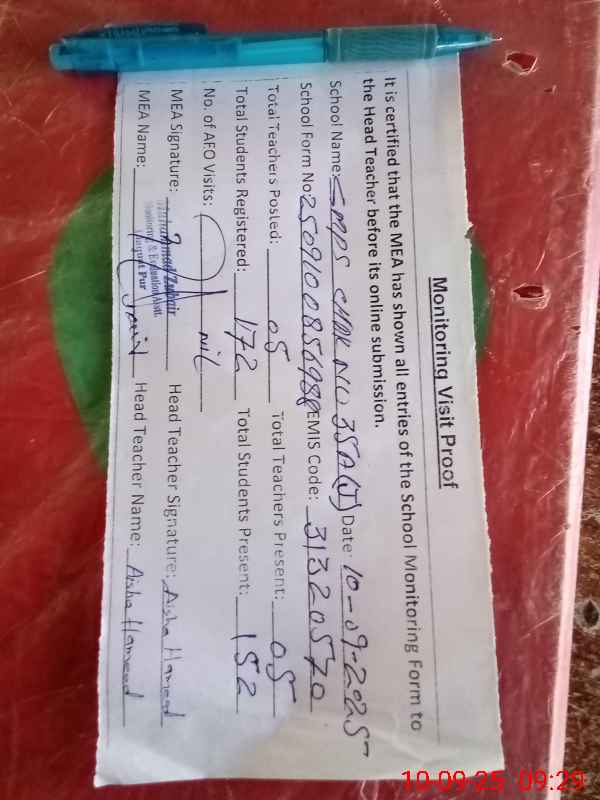 Monitoring Visit Proof
It is certified that the MEA has shown all entries of the School Monitoring Form to
the Head Teacher before its online submission.
School Name: GMPS CHAK NO 35A(J) Date: 10-09-2025
School Form No: EMIS Code: 31320570
Total Teachers Posted: 05 Total Teachers Present: 05
Total Students Registered: 172 Total Students Present: 152
No. of AFO Visits: nil
MEA Signature: Head Teacher Signature: Aisha Hameed
Muhammad Zubair
Monitoring & Evaluation Asstt.
MEA Name: Head Teacher Name: Aisha Hameed
10-09-25 09:29